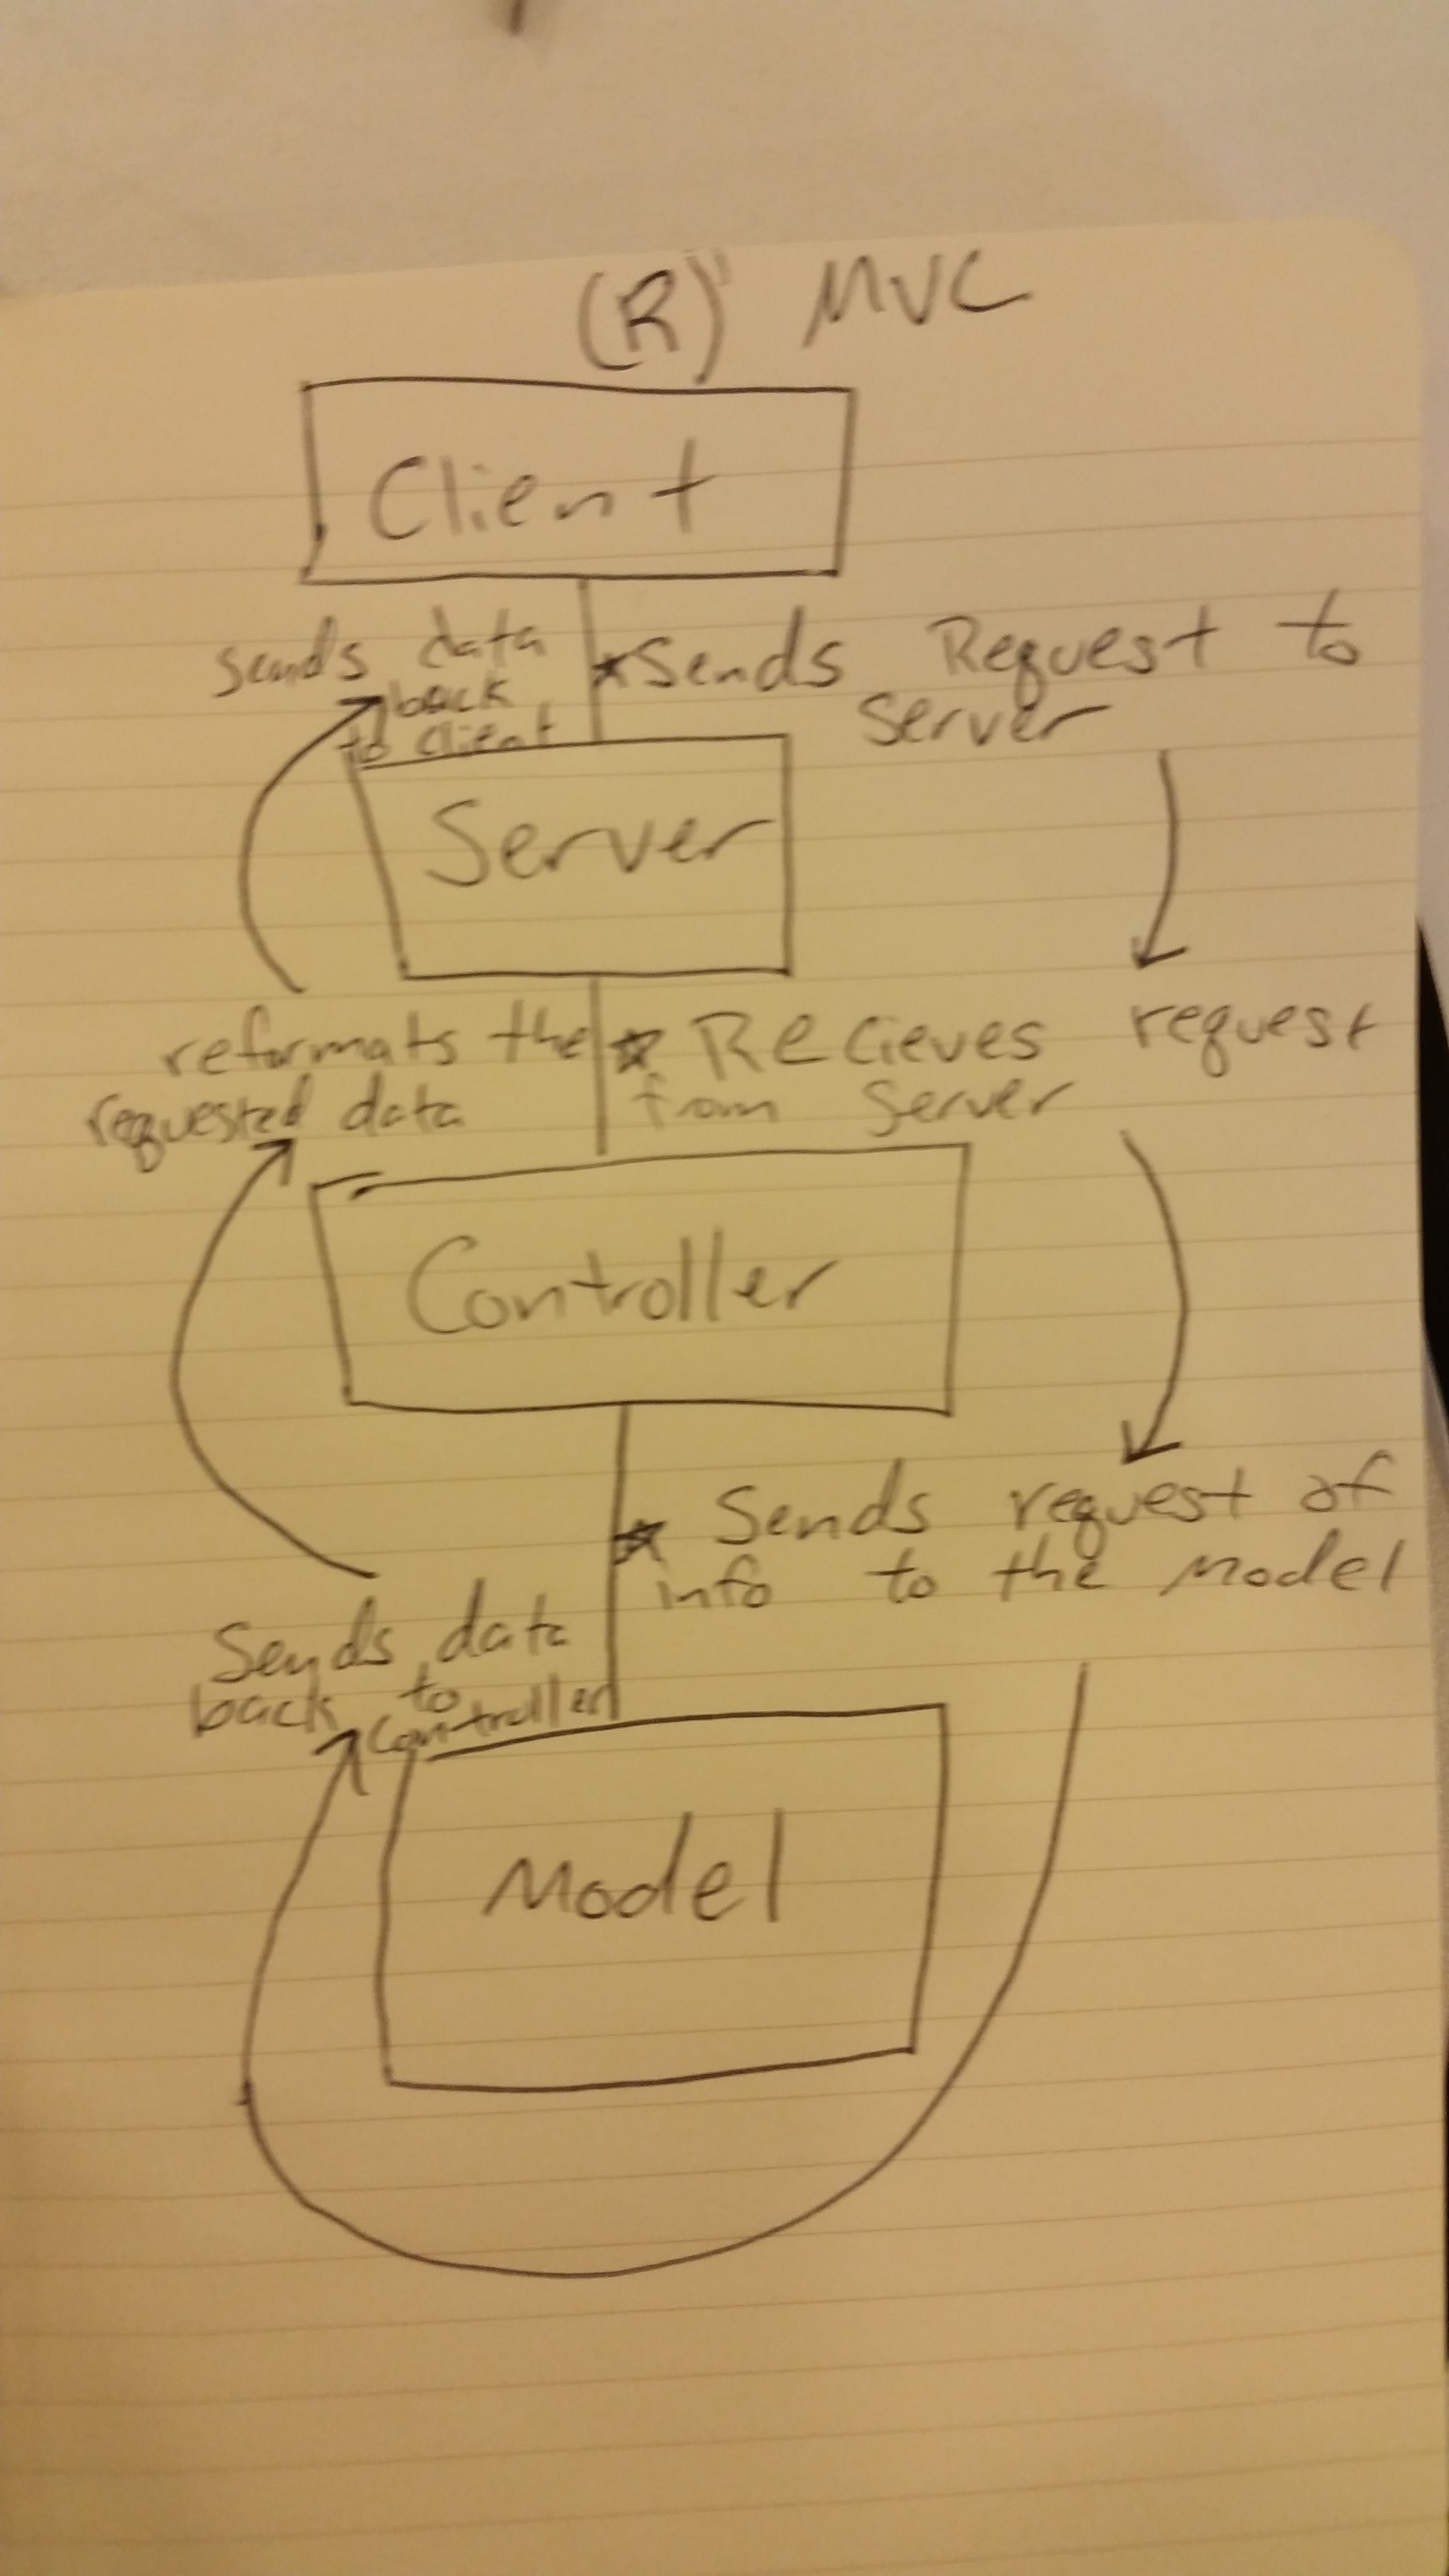 (R) MVC
Client
sends data
back
to client
★ Sends Request to
Server
Server
reformats the
requested data
★ Recieves request
from Server
Controller
★ Sends request of
info to the Model
Sends data
back to
controller
Model